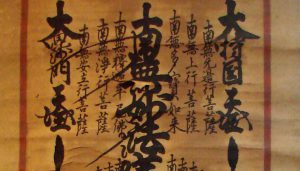 大持国天王
南無無邊行菩薩
南無上行菩薩
南無多寳如来
南無妙法
南無釋迦牟尼佛
南無浄行菩薩
南無安立行菩薩